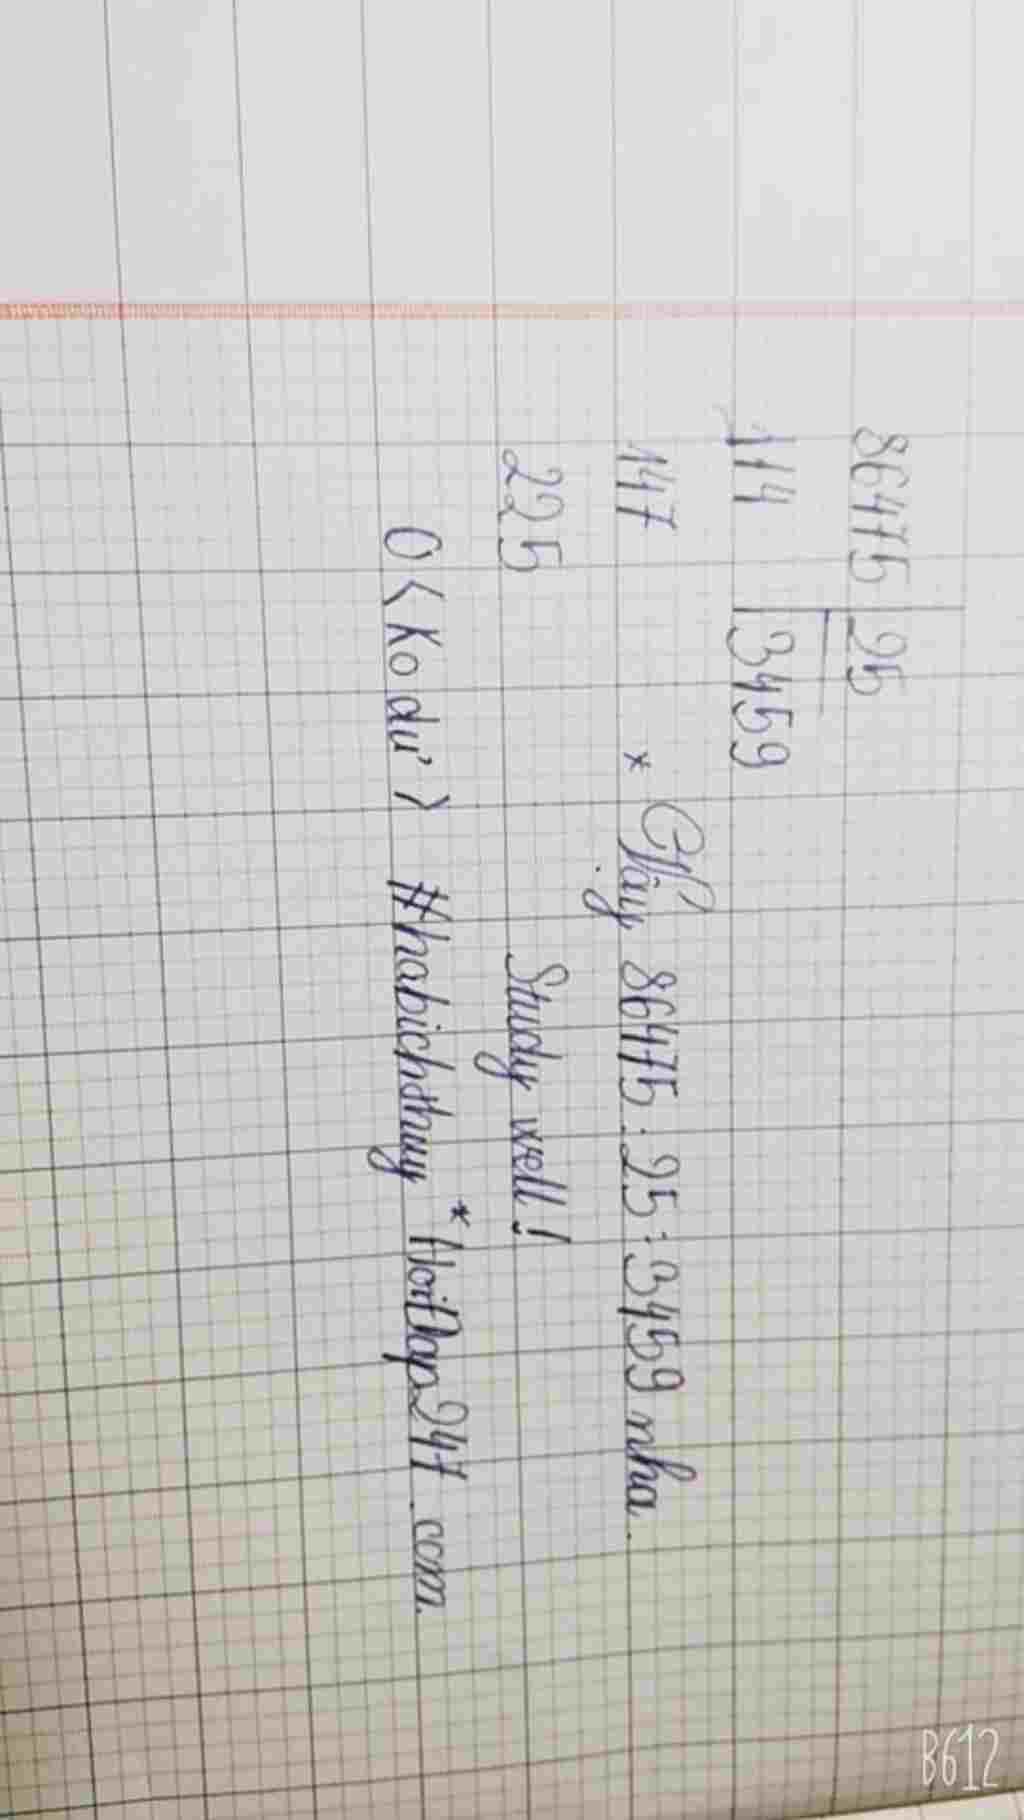 86475 25
114 3459
147 * Vậy 86475 : 25 = 3459 nha.
225 Study well!
0 <Ko dư> #habichthuy * HoiDap247.com.
B612